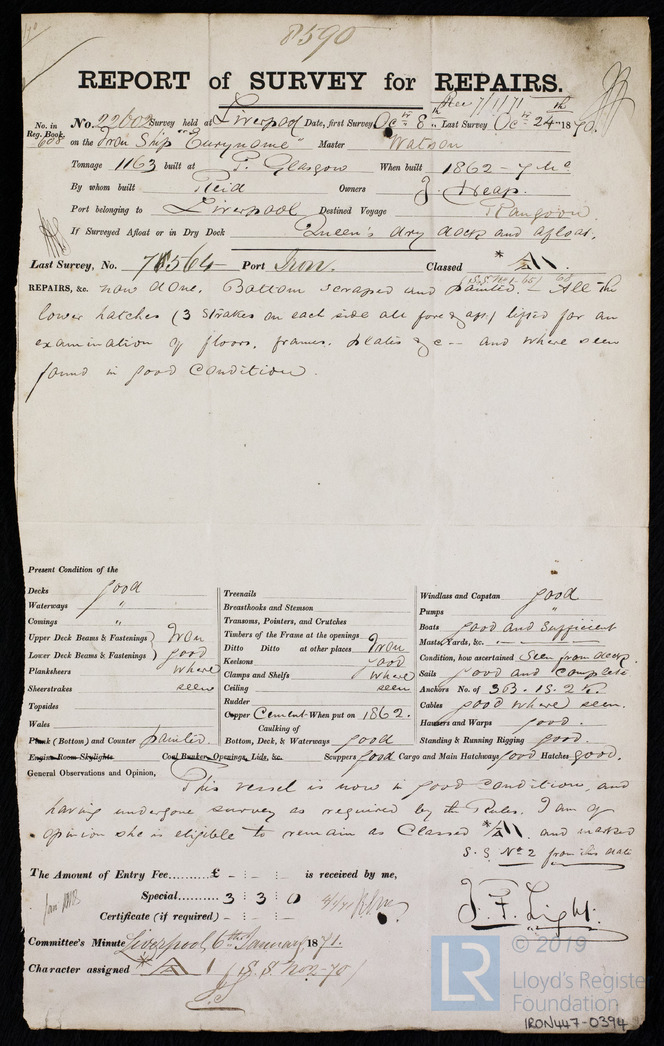 8590
REPORT of SURVEY for REPAIRS.
Rec 7/1/71
No. in Reg. Book. No. 22602 Survey held at Liverpool Date, first Survey Oct 8th Last Survey Oct 24th 1870.
608 on the Iron Ship "Eurynome" Master Watson
Tonnage 1163 built at P. Glasgow When built 1862 - 7 Mo
By whom built Reid Owners J. Heap.
Port belonging to Liverpool Destined Voyage Rangoon.
If Surveyed Afloat or in Dry Dock Queen's dry dock and afloat.
Last Survey, No. Port Iron. Classed * A 1.
REPAIRS, &c. now done. Bottom scraped and painted. - All the
lower hatches (3 strakes on each side all fore & aft) lifted for an
examination of floors, frames, plates &c - and where seen
found in good condition.
Present Condition of the
Decks good
Waterways "
Comings "
Upper Deck Beams & Fastenings Iron
Lower Deck Beams & Fastenings good
Planksheers where
Sheerstrakes seen
Topsides
Wales
Plank (Bottom) and Counter painted.
Engine Room Skylights Coal Bunker Openings, Lids, &c.
Treenails
Breasthooks and Stemson
Transoms, Pointers, and Crutches
Timbers of the Frame at the openings
Ditto Ditto at other places Iron
Keelsons good
Clamps and Shelfs where
Ceiling seen
Rudder
Copper Cement When put on 1862.
Caulking of
Bottom, Deck, & Waterways good
Scuppers good Cargo and Main Hatchways good Hatches good.
Windlass and Capstan good
Pumps "
Boats good and sufficient
Masts, Yards, &c.
Condition, how ascertained Seen from deck.
Sails good and complete
Anchors No. of 3 B. 1 S. 2 K.
Cables good where seen.
Hawsers and Warps good.
Standing & Running Rigging good.
General Observations and Opinion, This vessel is now in good condition and
having undergone survey as required by the Rules. I am of
opinion she is eligible to remain as Classed * A 1, and marked
S. S. No 2 from this date
The Amount of Entry Fee......... £ - : - : - is received by me,
Special......... 3 : 3 : 0
Certificate (if required) - : - : -
J. F. Light.
Committee's Minute Liverpool, 6th January, 1871.
Character assigned * A 1 (S. S. No 2-70)
© 2019
LR
Lloyd's Register
Foundation
IRON447-0394